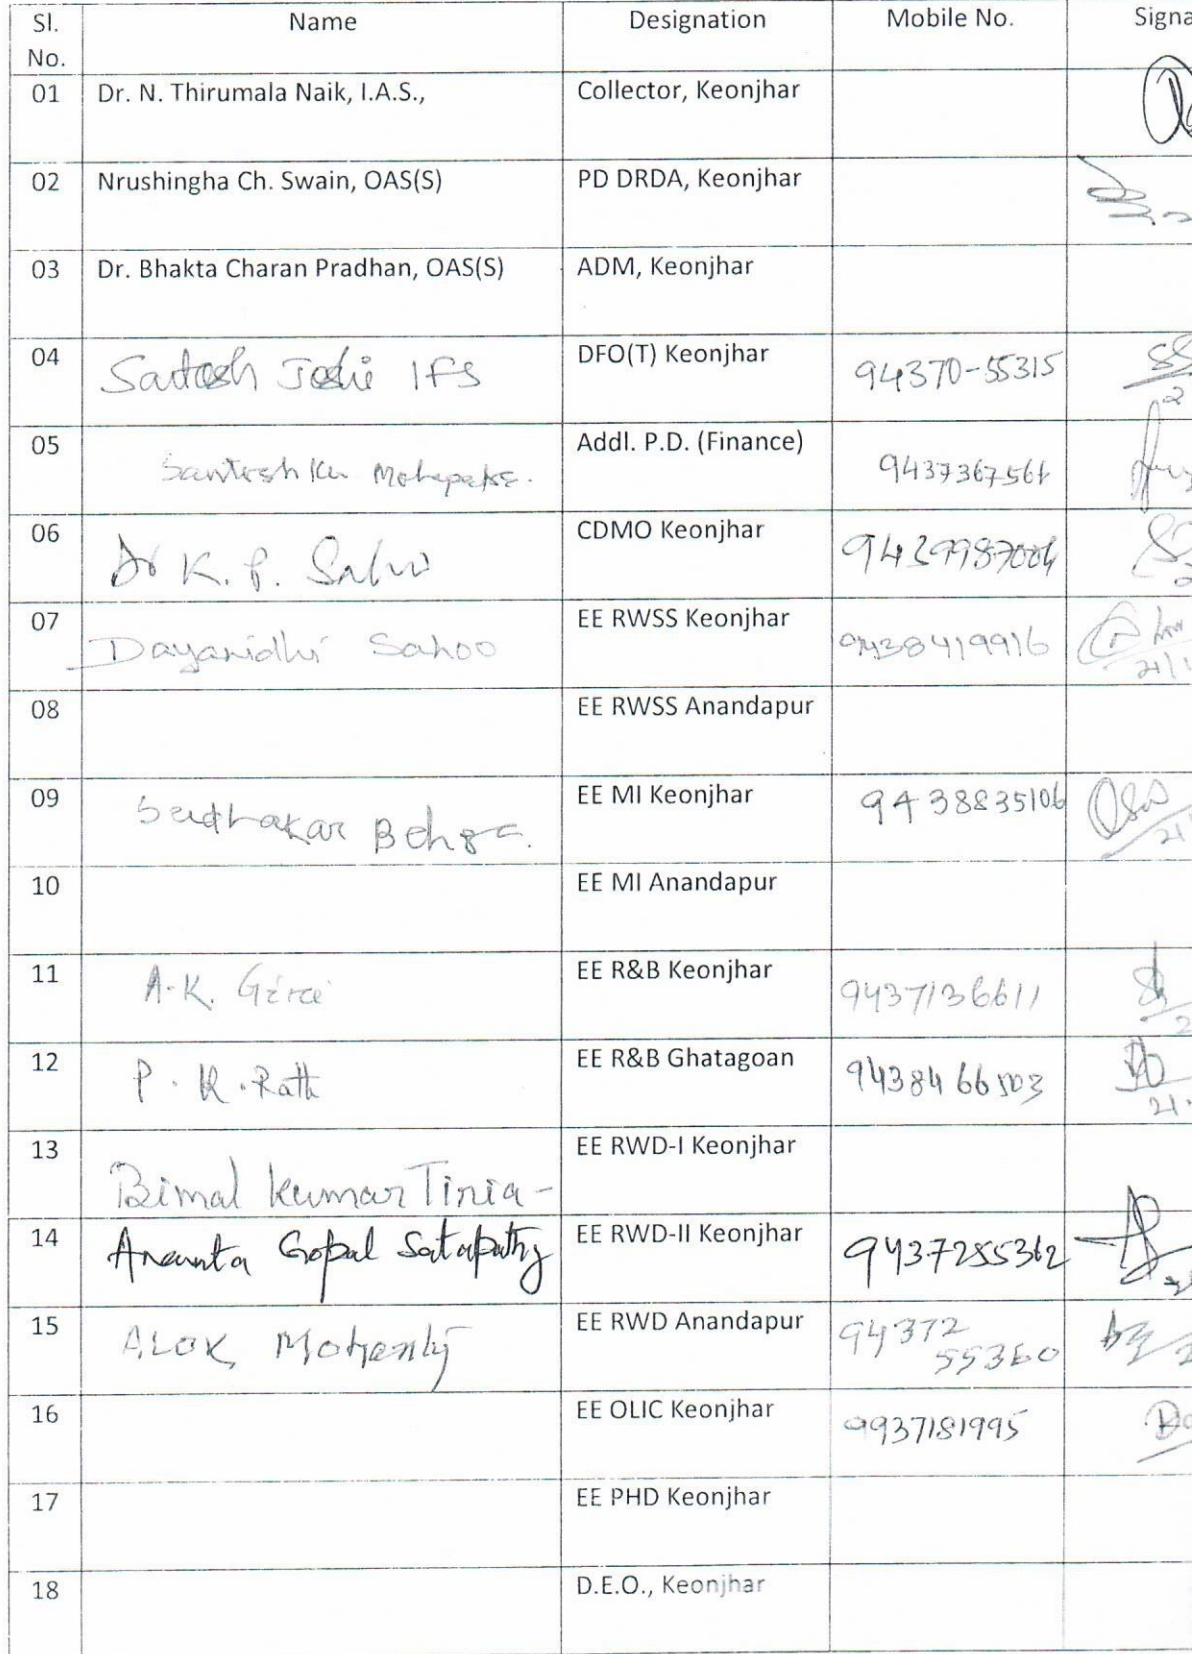 Sl. No. Name Designation Mobile No. Signa
01 Dr. N. Thirumala Naik, I.A.S., Collector, Keonjhar
02 Nrushingha Ch. Swain, OAS(S) PD DRDA, Keonjhar
03 Dr. Bhakta Charan Pradhan, OAS(S) ADM, Keonjhar
04 Joshi IFS DFO(T) Keonjhar 94370-55315
05 Santosh Ku Mohapatra. Addl. P.D. (Finance) 9437367561
06 Dr K. P. Sahu CDMO Keonjhar
07 Dayanidhi Sahoo EE RWSS Keonjhar 9438419916
08 EE RWSS Anandapur
09 Sudhakar Behera. EE MI Keonjhar 9438835106
10 EE MI Anandapur
11 A.K. Giri EE R&B Keonjhar 9437136611
12 P. K. Rath EE R&B Ghatagoan 9438466503
13 Bimal Kumar Tiria - EE RWD-I Keonjhar
14 Ananta Gopal Satapathy EE RWD-II Keonjhar 9437255362
15 ALOK Mohanty EE RWD Anandapur 94372 55360
16 EE OLIC Keonjhar 9937181995
17 EE PHD Keonjhar
18 D.E.O., Keonjhar